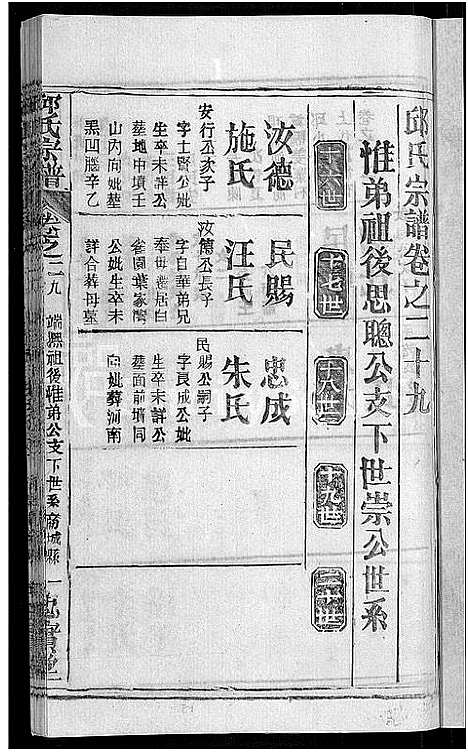 邱氏宗譜卷之二十九
惟弟祖後思聰公支下世崇公世系
十六世
十七世
十八世
十九世
二十世
汝德
施氏
安行公次子
字士賢公妣
生卒未詳公
墓地申墳壬
山丙向妣墓
黑凹腦辛乙
民賜
汪氏
汝德公長子
字自華弟兄
泰
居白
雀園葉家灣
公妣生卒未
詳合葬母墓
忠成
朱氏
民賜公嗣子
字良成公妣
生卒未詳公
墓面前墳同
向妣葬河南
邱氏宗譜
卷之二九
端熙祖後惟弟公支下世系商城縣
一